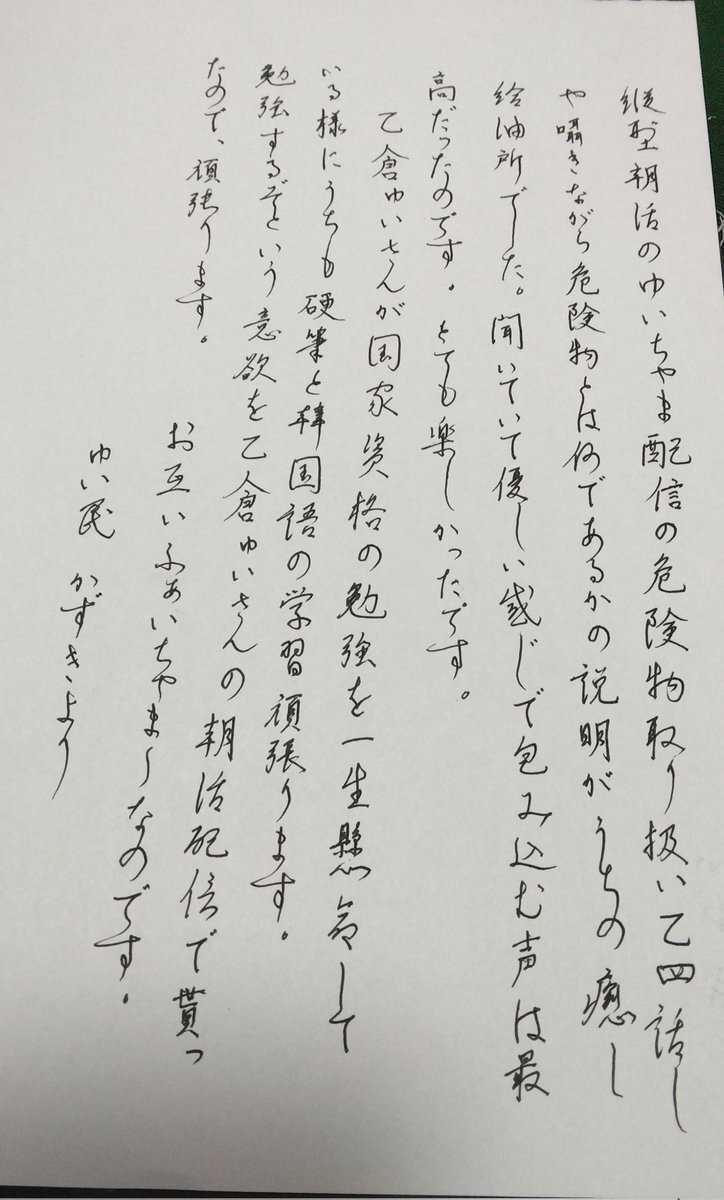 縦型朝活のゆいちゃま配信の危険物取り扱い乙四話し
や囁きながら危険物とは何であるかの説明がうちの癒し
給油所でした。聞いていて優しい感じで包み込む声は最
高だったのです。とても楽しかったです。
乙倉ゆいさんが国家資格の勉強を一生懸命して
いる様にうちも硬筆と韓国語の学習頑張ります。
勉強するぞという意欲を乙倉ゆいさんの朝活配信で貰っ
なので、頑張ります。
お互いふぁいちゃま〜なのです。
ゆい民 かずきより